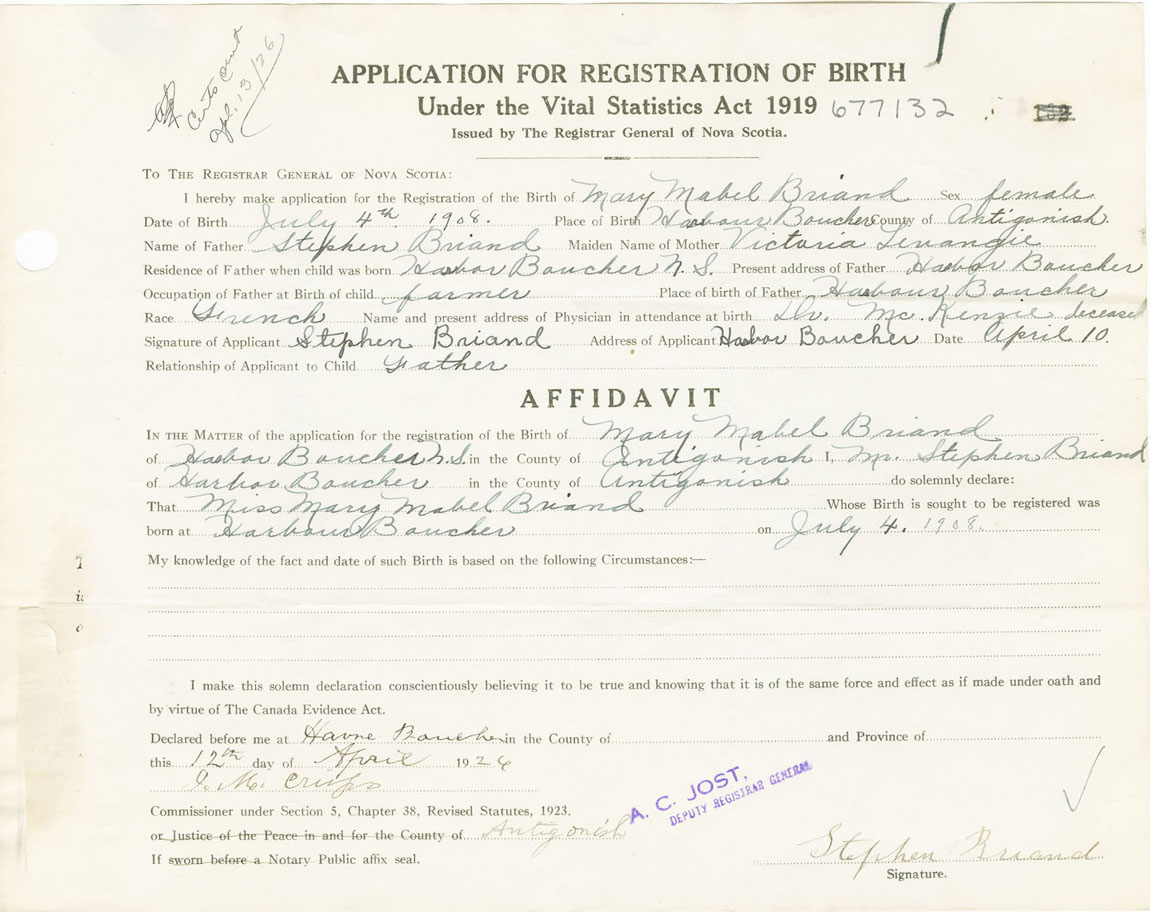 Certs Cent
Apl. 13/26
APPLICATION FOR REGISTRATION OF BIRTH
Under the Vital Statistics Act 1919 677132
Issued by The Registrar General of Nova Scotia.
To The Registrar General of Nova Scotia:
I hereby make application for the Registration of the Birth of Mary Mabel Briand Sex female
Date of Birth July 4th 1908. Place of Birth Harbour Boucher County of Antigonish.
Name of Father Stephen Briand Maiden Name of Mother Victoria Levangie
Residence of Father when child was born Harbor Boucher N.S. Present address of Father Harbor Boucher
Occupation of Father at Birth of child farmer Place of birth of Father Harbour Boucher
Race French Name and present address of Physician in attendance at birth Dr. McKenzie deceased
Signature of Applicant Stephen Briand Address of Applicant Harbor Boucher Date April 10.
Relationship of Applicant to Child Father
AFFIDAVIT
In the Matter of the application for the registration of the Birth of Mary Mabel Briand
of Harbor Boucher N.S. in the County of Antigonish I, Mr. Stephen Briand
of Harbor Boucher in the County of Antigonish do solemnly declare:
That Miss Mary Mabel Briand Whose Birth is sought to be registered was
born at Harbour Boucher on July 4. 1908.
My knowledge of the fact and date of such Birth is based on the following Circumstances:—
I make this solemn declaration conscientiously believing it to be true and knowing that it is of the same force and effect as if made under oath and
by virtue of The Canada Evidence Act.
Declared before me at Havre Boucher in the County of and Province of
this 12th day of April 1926
J. M. Crispo
Commissioner under Section 5, Chapter 38, Revised Statutes, 1923.
or Justice of the Peace in and for the County of Antigonish
If sworn before a Notary Public affix seal.
A. C. JOST,
DEPUTY REGISTRAR GENERAL
Stephen Briand
Signature.